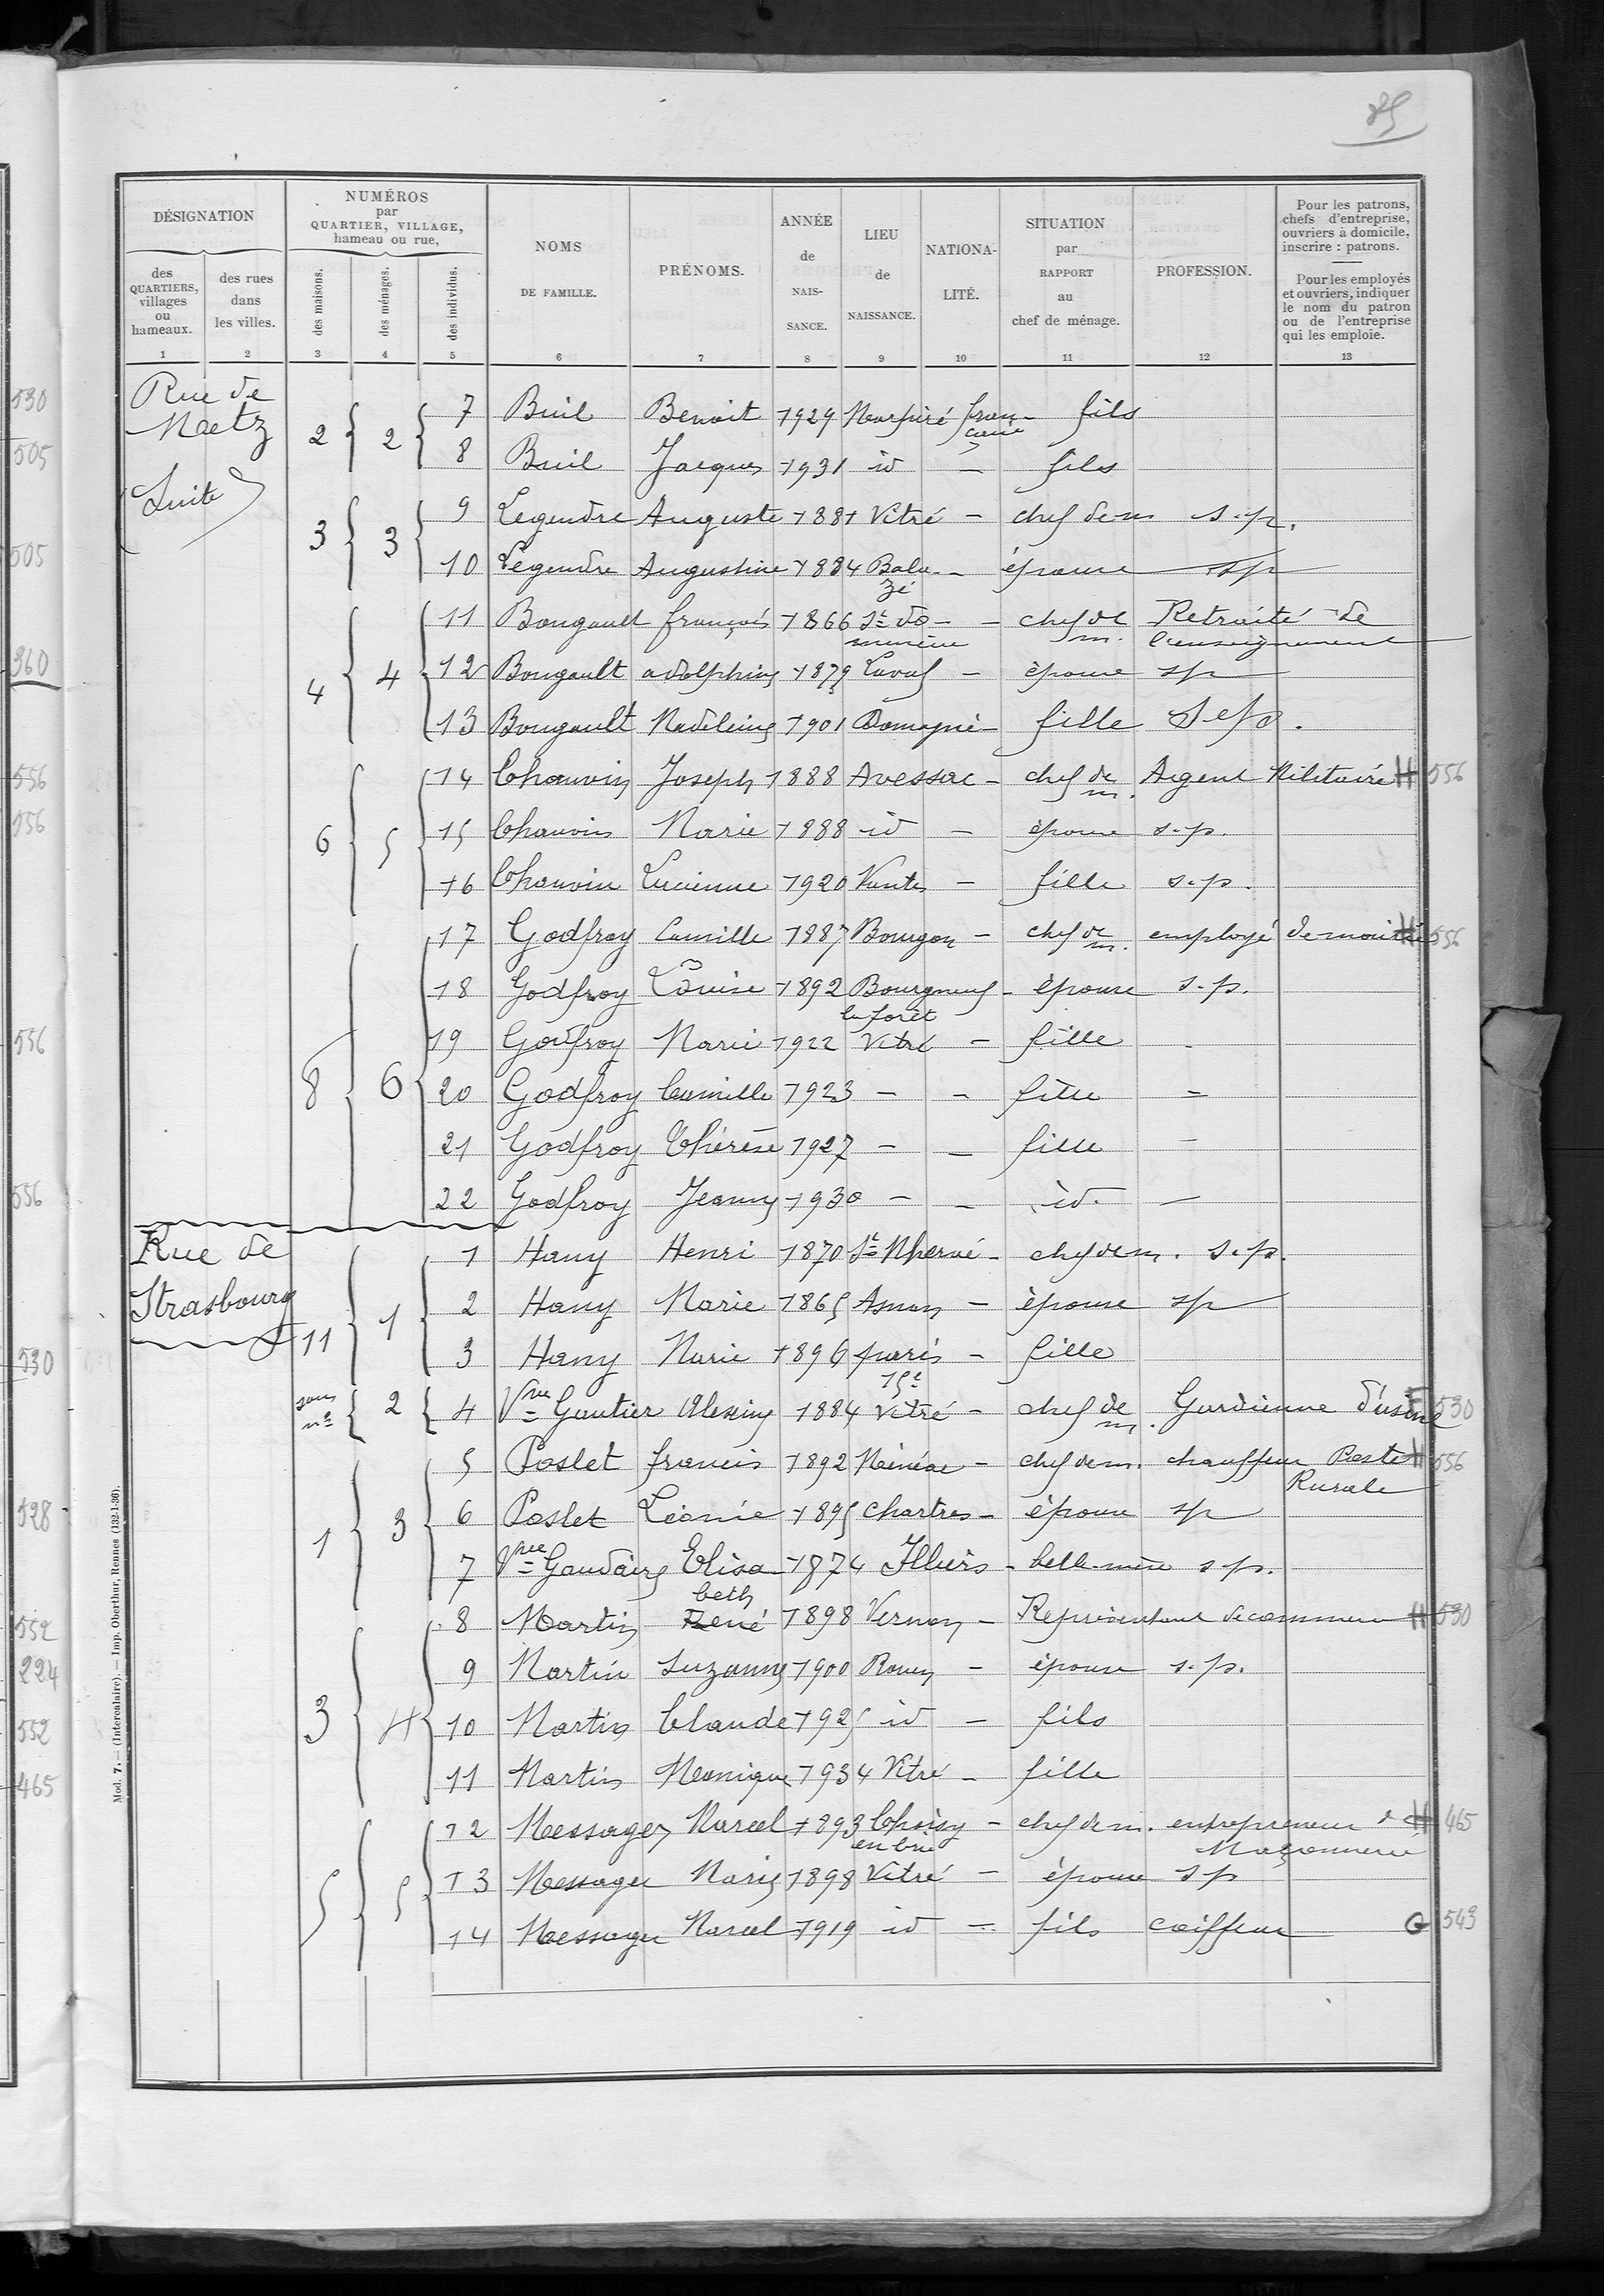 85
DÉSIGNATION
des QUARTIERS, villages ou hameaux.
des rues dans les villes.
NUMÉROS par QUARTIER, VILLAGE, hameau ou rue,
des maisons.
des ménages.
des individus.
NOMS DE FAMILLE.
PRÉNOMS.
ANNÉE de NAISSANCE.
LIEU de NAISSANCE.
NATIONALITÉ.
SITUATION par RAPPORT au chef de ménage.
PROFESSION.
Pour les patrons, chefs d'entreprise, ouvriers à domicile, inscrire : patrons.
Pour les employés et ouvriers, indiquer le nom du patron ou de l'entreprise qui les emploie.
1 2 3 4 5 6 7 8 9 10 11 12 13
Rue de Metz
Suite
2 2 7 Buil Benoit 1929 Marpiré française fils
8 Buil Jacques 1931 id – fils
3 3 9 Legendre Auguste 1881 Vitré – chef de m s.p.
10 Legendre Augustine 1884 Balazé – épouse sp
4 4 11 Bougault françois 1866 – chef de m. Retraité de l'enseignement
12 Bougault adolphine 1879 Laval – épouse sp
13 Bougault Madeleine 1901 Domagné – fille
6 5 14 Chauvin Joseph 1888 Avessac – chef de m. Agent Militaire H 556
15 Chauvin Marie 1888 id – épouse s.p.
16 Chauvin Lucienne 1920 Nantes – fille s.p.
8 6 17 Godfroy Camille 1887 Bourgon – chef de m. employé de mairie H 556
18 Godfroy Louise 1892 Bourgneuf la forêt – épouse s.p.
19 Godfroy Marie 1922 Vitré – fille -
20 Godfroy Camille 1923 – – fille –
21 Godfroy Thérèse 1927 – – fille –
22 Godfroy Jeanny 1930 – – id. –
Rue de Strasbourg
11 1 1 Hany Henri 1870 St Mhervé – chef de m. s.p.
2 Hany Marie 1865 – épouse sp
3 Hany Marie 1896 paris 15e – fille
sans no 2 4 Vve Gautier 1884 Vitré – chef de m. Gardienne d'usine 530
1 3 5 Poslet francis 1892 Ménéac – chef de m. chauffeur Poste Rurale H 556
6 Poslet Léonie 1895 Chartres – épouse sp
7 Vve Elisabeth 1874 Illiers – belle-mère s.p.
3 4 8 Martin René 1898 Vernon – Représentant de commerce H 530
9 Martin Suzanne 1900 Rouen – épouse s.p.
10 Martin Claude 1925 id – fils
11 Martin Monique 1934 Vitré – fille
5 5 12 Messager Marcel 1893 Choisy en brie – chef de m. entrepreneur de Maçonnerie H 465
13 Messager Marie 1898 Vitré – épouse sp
14 Messager Marcel 1919 id – fils coiffeur G 543
Mod. 7. — (Intercalaire). — Imp. Oberthur, Rennes (132-1-36).
530
505
505
360
556
556
556
556
530
528
552
224
552
465